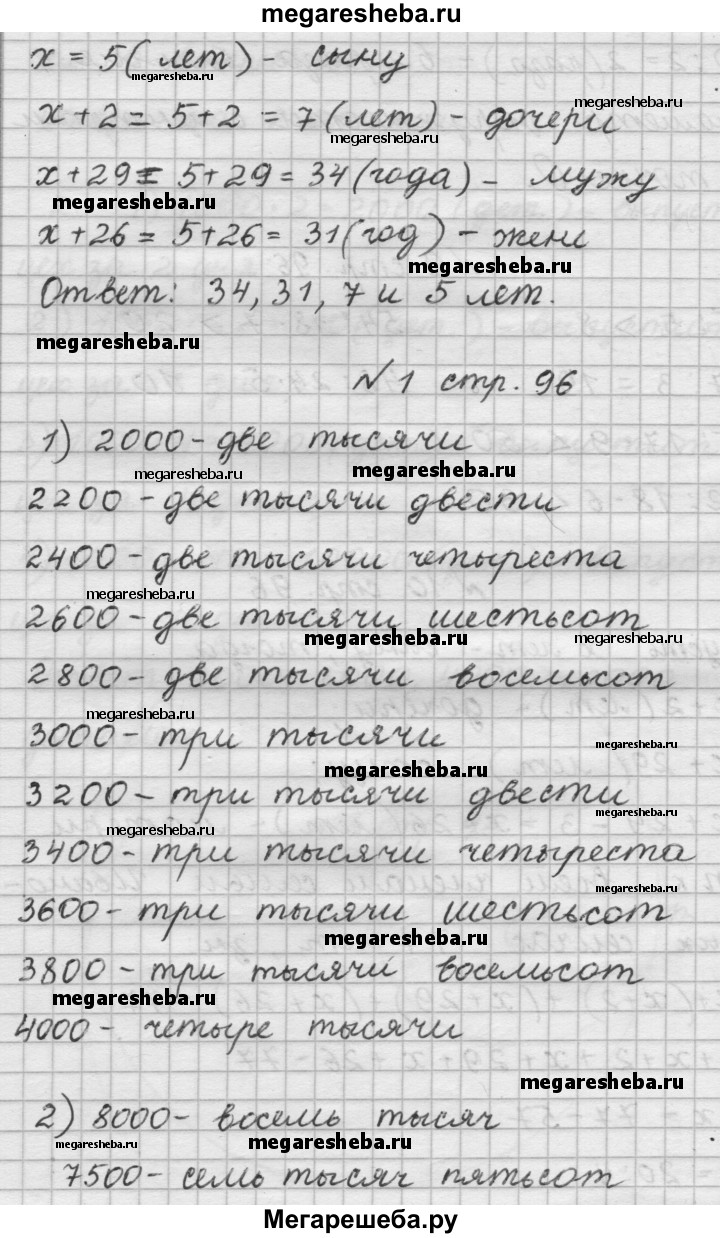 megaresheba.ru
x = 5 (лет) - сыну
megaresheba.ru
megaresheba.ru
x + 2 = 5 + 2 = 7 (лет) - дочери
megaresheba.ru
x + 29 = 5 + 29 = 34 (года) - мужу
megaresheba.ru
x + 26 = 5 + 26 = 31 (год) - жене
megaresheba.ru
Ответ: 34, 31, 7 и 5 лет.
megaresheba.ru
№1 стр. 96
1) 2000 - две тысячи
megaresheba.ru megaresheba.ru
2200 - две тысячи двести
2400 - две тысячи четыреста
megaresheba.ru
2600 - две тысячи шестьсот
megaresheba.ru megaresheba.ru
2800 - две тысячи восемьсот
megaresheba.ru
3000 - три тысячи
megaresheba.ru
megaresheba.ru
3200 - три тысячи двести
megaresheba.ru
3400 - три тысячи четыреста
megaresheba.ru
3600 - три тысячи шестьсот
megaresheba.ru
3800 - три тысячи восемьсот
megaresheba.ru
4000 - четыре тысячи
megaresheba.ru
2) 8000 - восемь тысяч
megaresheba.ru megaresheba.ru
7500 - семь тысяч пятьсот
Мегарешеба.ру